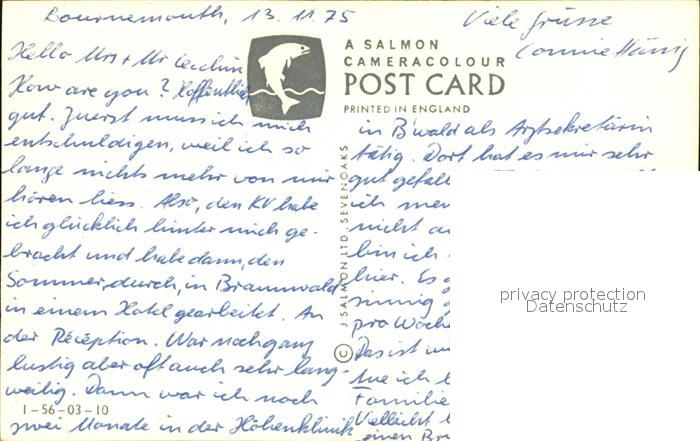 Bournemouth, 13.11.75
Hello Mrs + Mr
How are you? Hoffentlich
gut. Zuerst muss ich mich
entschuldigen, weil ich so
lange nichts mehr von mir
hören liess. Also, den KV habe
ich glücklich hinter mich ge-
bracht und habe dann, den
Sommer durch, in Braunwald
in einem Hotel gearbeitet. An
der Réception. War noch ganz
lustig aber oft auch sehr lang-
weilig. Dann war ich noch
zwei Monate in der Höhenklinik
1-56-03-10
A SALMON
CAMERACOLOUR
POST CARD
PRINTED IN ENGLAND
© J. SALMON LTD., SEVENOAKS
Viele Grüsse
Connie
in B'wald als Arztsekretärin
tätig. Dort hat es mir sehr
gut gefall
ich
nicht
bin ich
hier. Es
pro Woche
Das ist
ich
Familie
Vielleicht
einen
privacy protection
Datenschutz